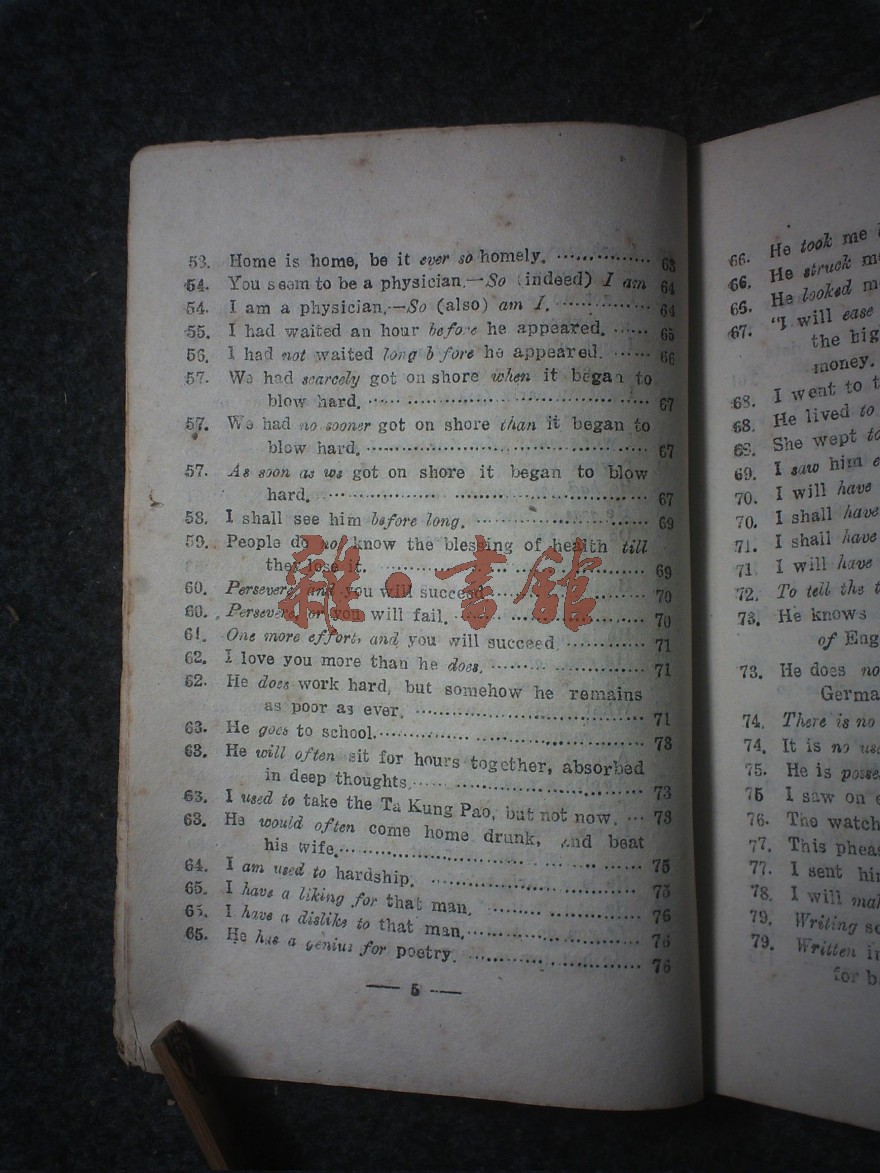 53. Home is home, be it ever so homely. 63
54. You seem to be a physician.—So (indeed) I am 64
54. I am a physician.—So (also) am I. 64
55. I had waited an hour before he appeared. 65
56. I had not waited long before he appeared. 66
57. We had scarcely got on shore when it began to
blow hard. 67
57. We had no sooner got on shore than it began to
blow hard. 67
57. As soon as we got on shore it began to blow
hard. 67
58. I shall see him before long. 69
59. People do not know the blessing of health till
they lose it. 69
60. Persevere, and you will succeed. 70
60. Persevere, or you will fail. 70
61. One more effort, and you will succeed. 71
62. I love you more than he does. 71
62. He does work hard, but somehow he remains
as poor as ever. 71
63. He goes to school. 73
63. He will often sit for hours together, absorbed
in deep thoughts. 73
63. I used to take the Ta Kung Pao, but not now. 73
63. He would often come home drunk, and beat
his wife. 75
64. I am used to hardship. 75
65. I have a liking for that man. 76
65. I have a dislike to that man. 76
65. He has a genius for poetry. 76
— 5 —
66. He took me
66. He struck me
65. He looked me
67. "I will ease
the big
money.
68. I went to t
68. He lived to
68. She wept to
69. I saw him e
70. I will have
70. I shall have
71. I shall have
71. I will have
72. To tell the t
73. He knows
of Eng
73. He does no
Germa
74. There is no
74. It is no use
75. He is posse
75 I saw on e
76. The watch
77. This pheas
77. I sent him
78. I will mak
79. Writing so
79. Written in
for b
雜·書館